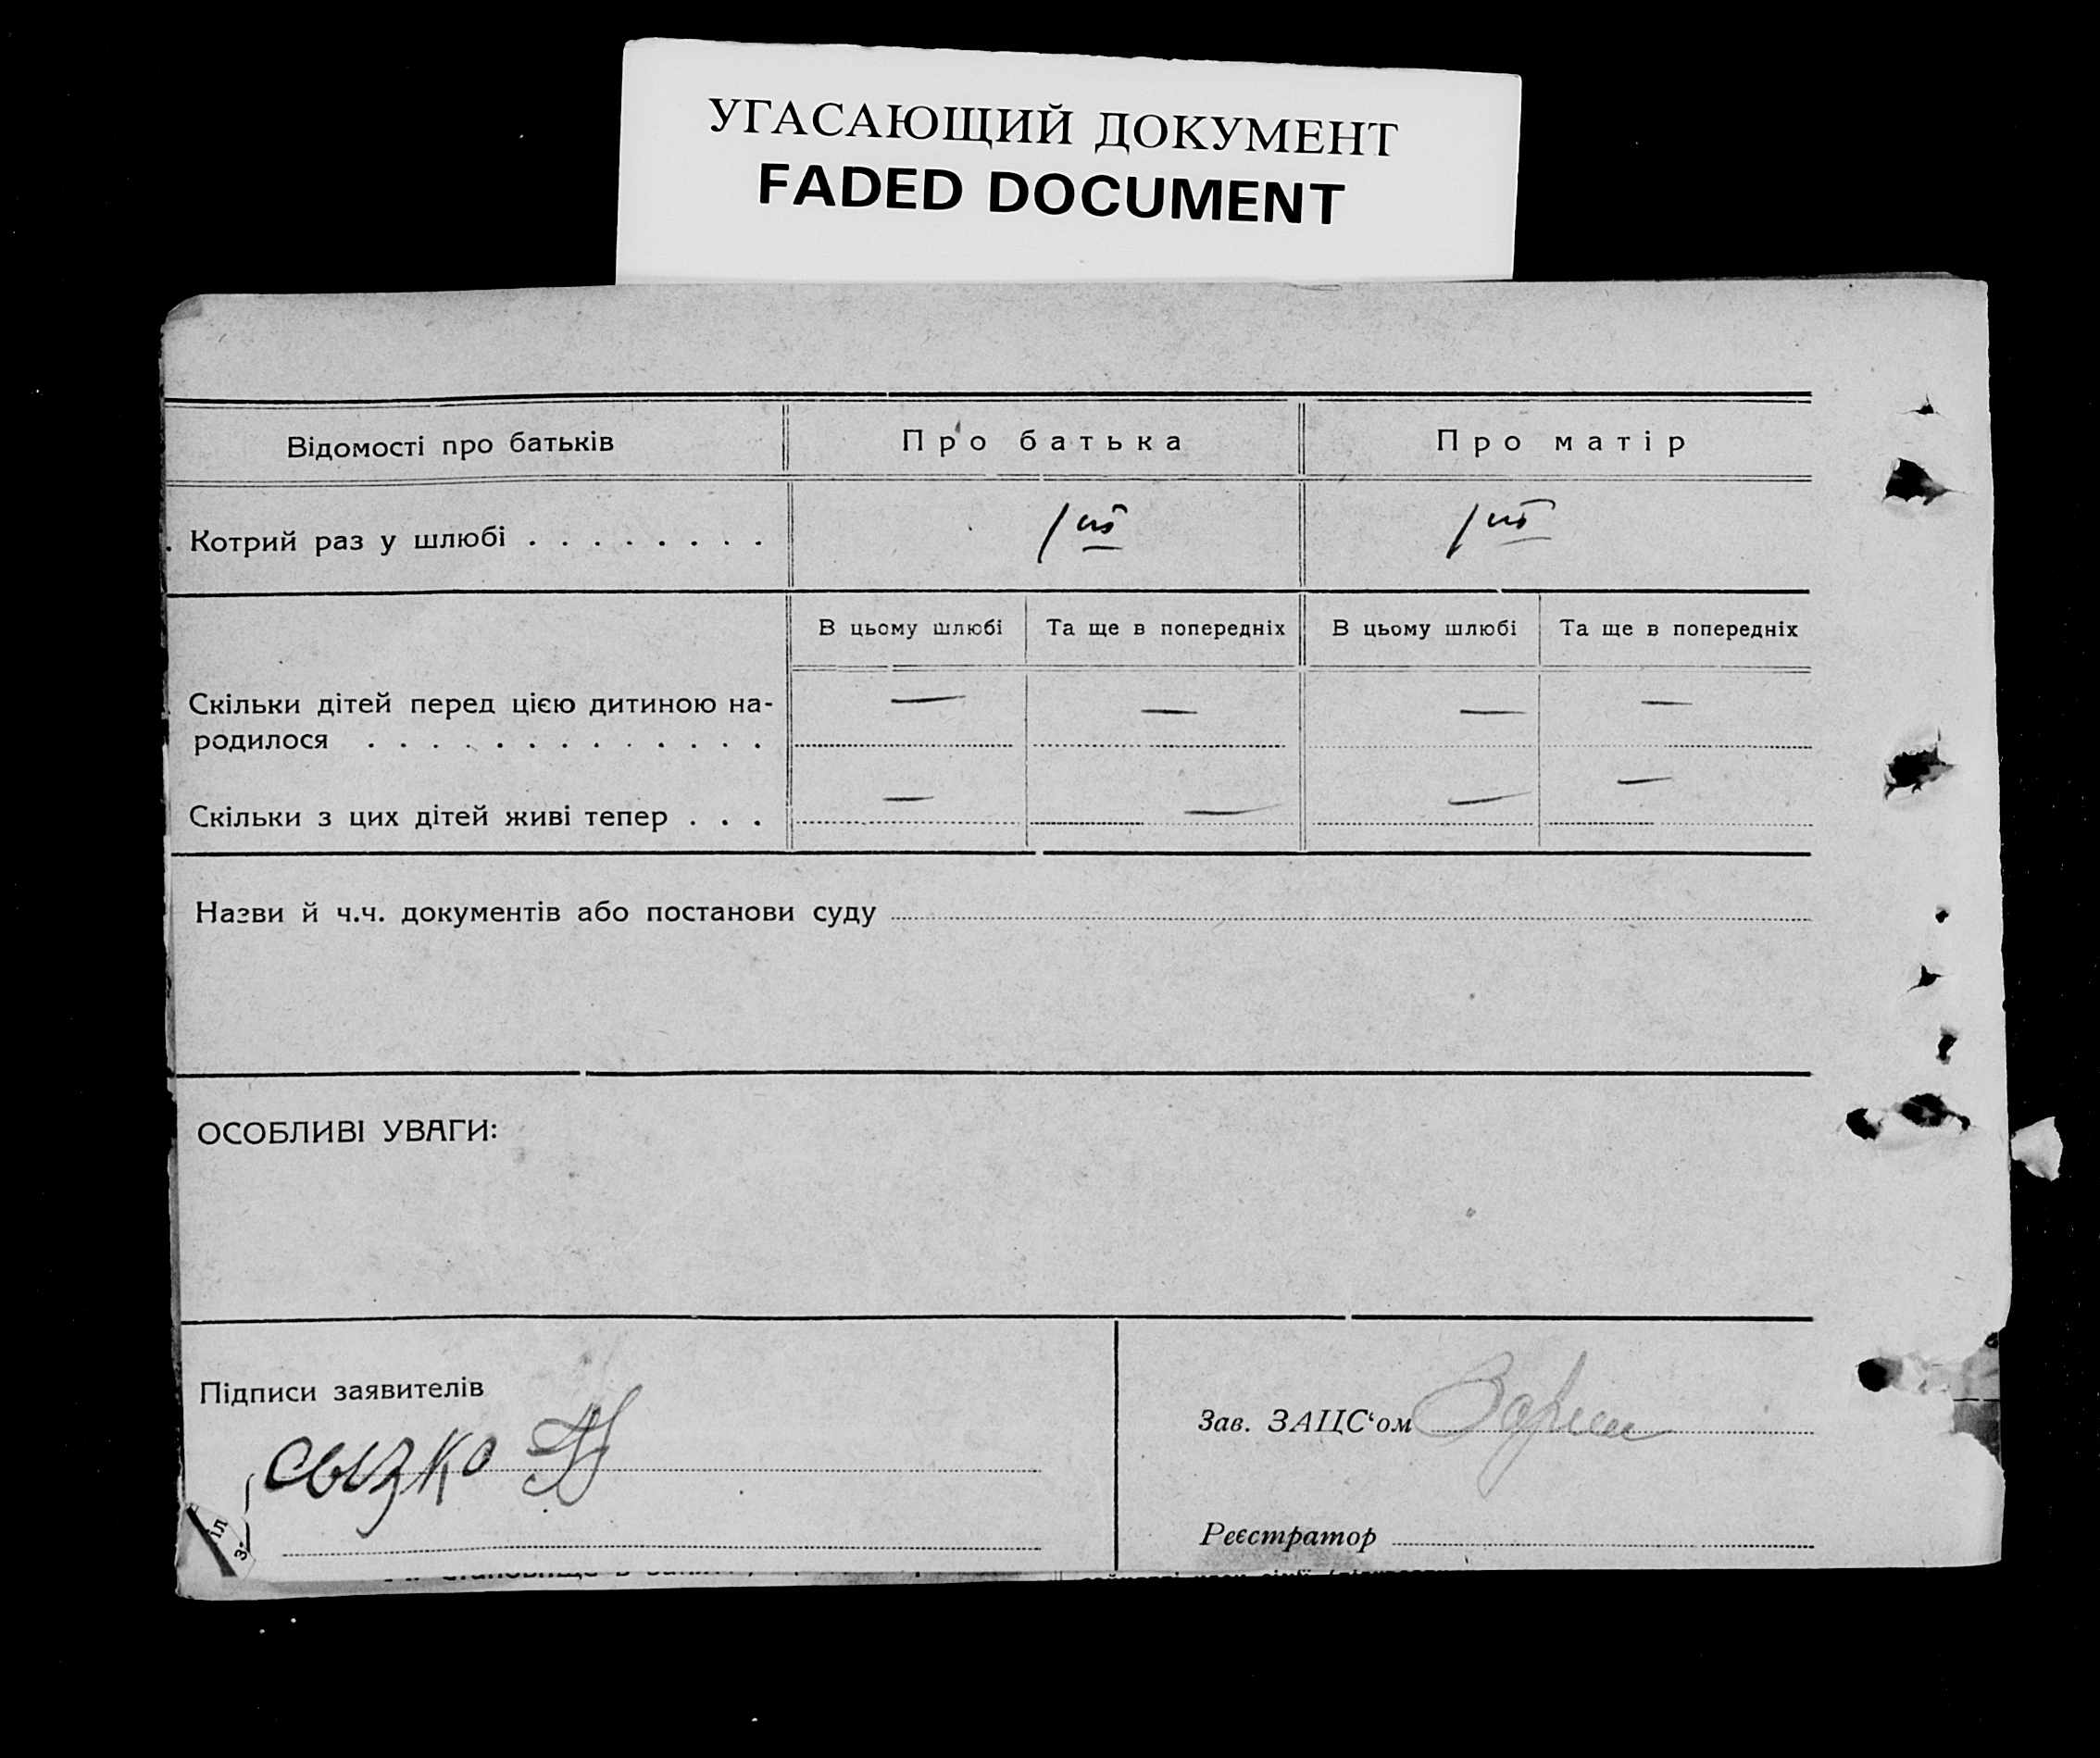 УГАСАЮЩИЙ ДОКУМЕНТ
FADED DOCUMENT
Відомості про батьків Про батька Про матір
Котрий раз у шлюбі . . . . . . . . 1ий 1ий
В цьому шлюбі Та ще в попередніх В цьому шлюбі Та ще в попередніх
Скільки дітей перед цією дитиною на-
родилося . . . . . . . . . . . . . — — — —
Скільки з цих дітей живі тепер . . . — — — —
Назви й ч.ч. документів або постанови суду
ОСОБЛИВІ УВАГИ:
Підписи заявителів
Зав. ЗАЦС‘ом
Реєстратор